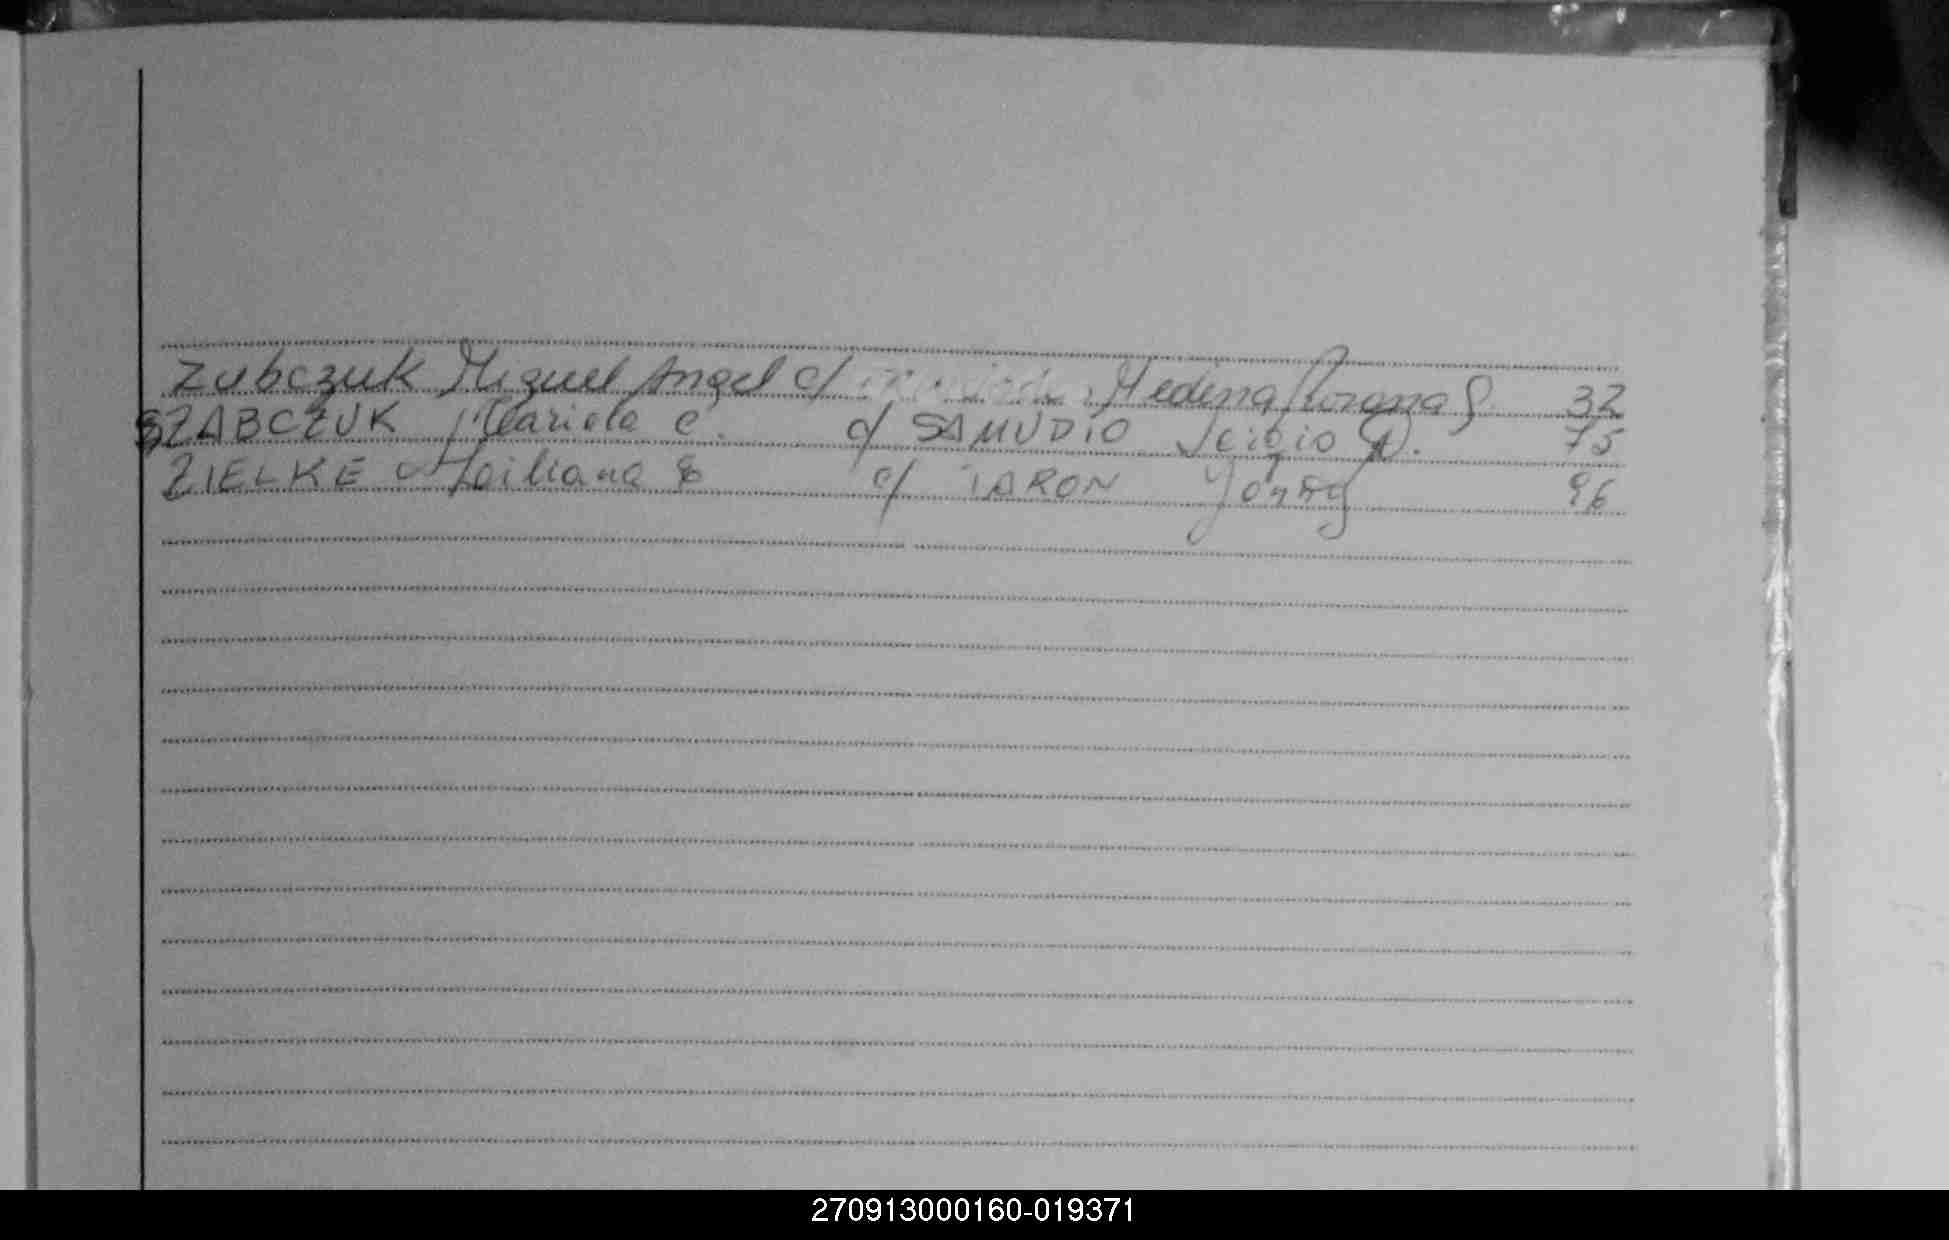 Zubczuk Miguel Angel c/ Medina Rorana G. 32
SZABCZUK Mariela C. c/ SAMUDIO Sergio D. 75
ZIELKE c/ TARON 96
270913000160-019371